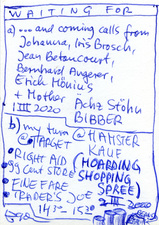 WAITING FOR
a) ... and coming calls from
Johanna, Iris Brosch,
Jean Betancourt,
Bernhard Angerer,
Erich Mönius
+ Mother Achz Stöhn
1 III 2020 BIBBER
b) my turn @HAMSTER
@TARGET KAUF
• RIGHT AID (HOARDING
• 99 Cent STORE SHOPPING
• FINE FARE SPREE)
• TRADER'S JOE 2 III
14³⁰ - 15³⁰ 2020